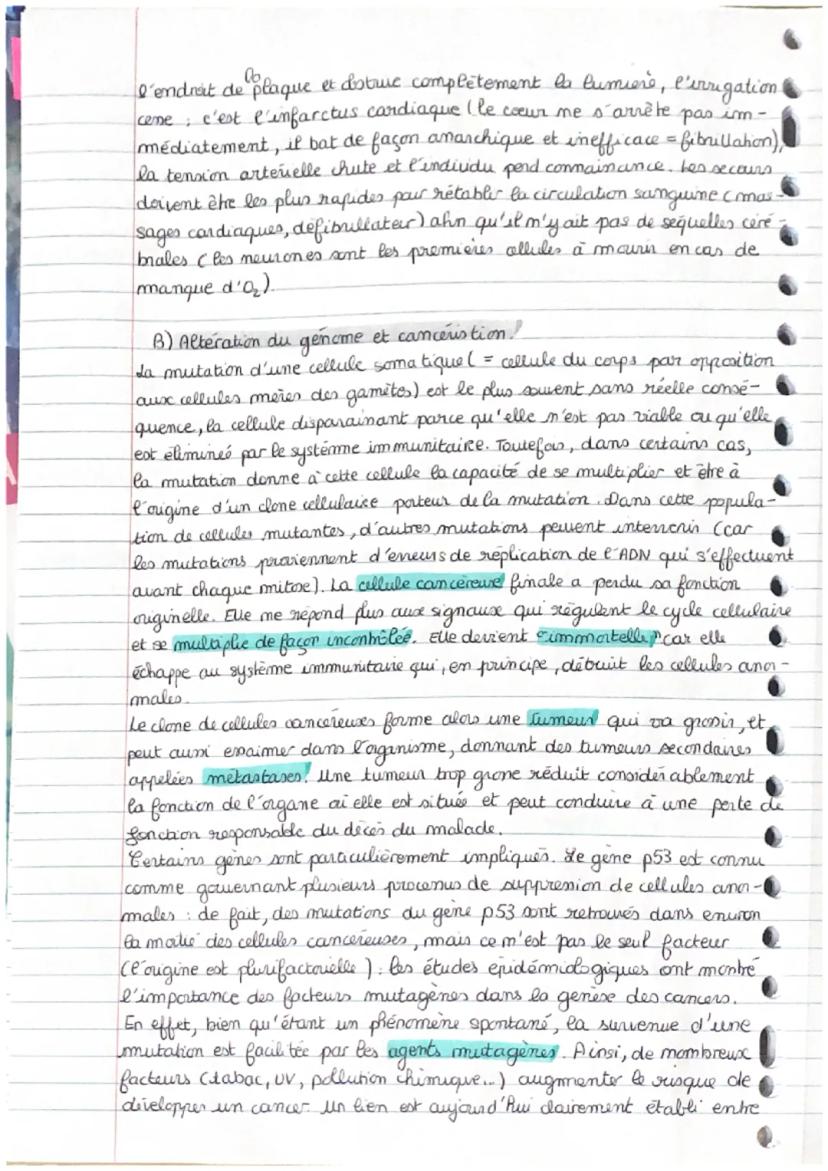 l'endroit de la plaque et obstrue complètement la lumière, l'irrigation
cesse ; c'est l'infarctus cardiaque (le cœur ne s'arrête pas im-
médiatement, il bat de façon anarchique et inefficace = fibrillation),
la tension artérielle chute et l'individu perd connaissance. Les secours
doivent être les plus rapides pour rétablir la circulation sanguine (mas-
sages cardiaques, défibrillateur) afin qu'il n'y ait pas de séquelles céré-
brales (les neurones sont les premières cellules à mourir en cas de
manque d'O₂).
B) Altération du génome et cancéristion.
La mutation d'une cellule somatique (= cellule du corps par opposition
aux cellules mères des gamètes) est le plus souvent sans réelle consé-
quence, la cellule disparaissant parce qu'elle n'est pas viable ou qu'elle
est éliminée par le système immunitaire. Toutefois, dans certains cas,
la mutation donne à cette cellule la capacité de se multiplier et être à
l'origine d'un clone cellulaire porteur de la mutation. Dans cette popula-
tion de cellules mutantes, d'autres mutations peuvent intervenir (car
les mutations proviennent d'erreurs de réplication de l'ADN qui s'effectuent
avant chaque mitose). La cellule cancéreuse finale a perdu sa fonction
originelle. Elle ne répond plus aux signaux qui régulent le cycle cellulaire
et se multiplie de façon incontrôlée. Elle devient "immortelle" car elle
échappe au système immunitaire qui, en principe, détruit les cellules anor-
males.
Le clone de cellules cancéreuses forme alors une tumeur qui va grossir, et
peut aussi essaimer dans l'organisme, donnant des tumeurs secondaires
appelées métastases. Une tumeur trop grosse réduit considérablement
la fonction de l'organe où elle est située et peut conduire à une perte de
fonction responsable du décès du malade.
Certains gènes sont particulièrement impliqués. Le gène p53 est connu
comme gouvernant plusieurs processus de suppression de cellules anor-
males : de fait, des mutations du gène p53 sont retrouvés dans environ
la moitié des cellules cancéreuses, mais ce n'est pas le seul facteur
(l'origine est plurifactorielle). Les études épidémiologiques ont montré
l'importance des facteurs mutagènes dans la genèse des cancers.
En effet, bien qu'étant un phénomène spontané, la survenue d'une
mutation est facilitée par les agents mutagènes. Ainsi, de nombreux
facteurs (tabac, UV, pollution chimique...) augmenter le risque de
développer un cancer. Un lien est aujourd'hui clairement établi entre